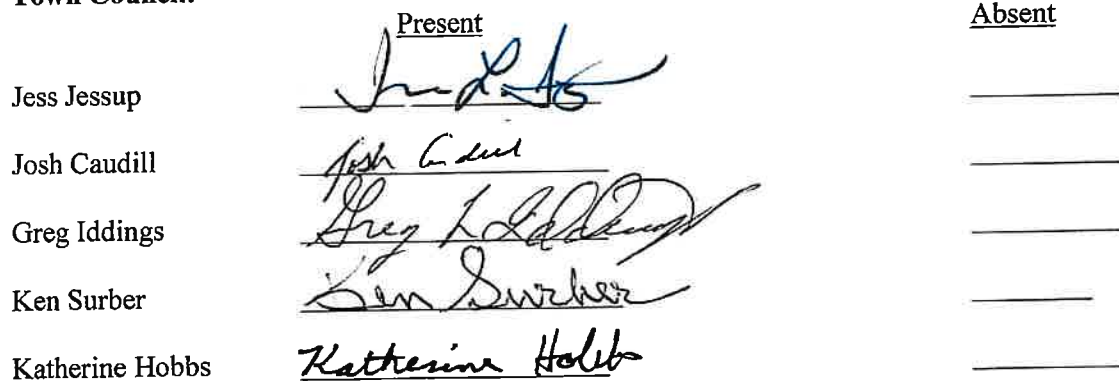 Present Absent
Jess Jessup
Josh Caudill Josh Caudill
Greg Iddings Greg L Iddings
Ken Surber Ken Surber
Katherine Hobbs Katherine Hobbs